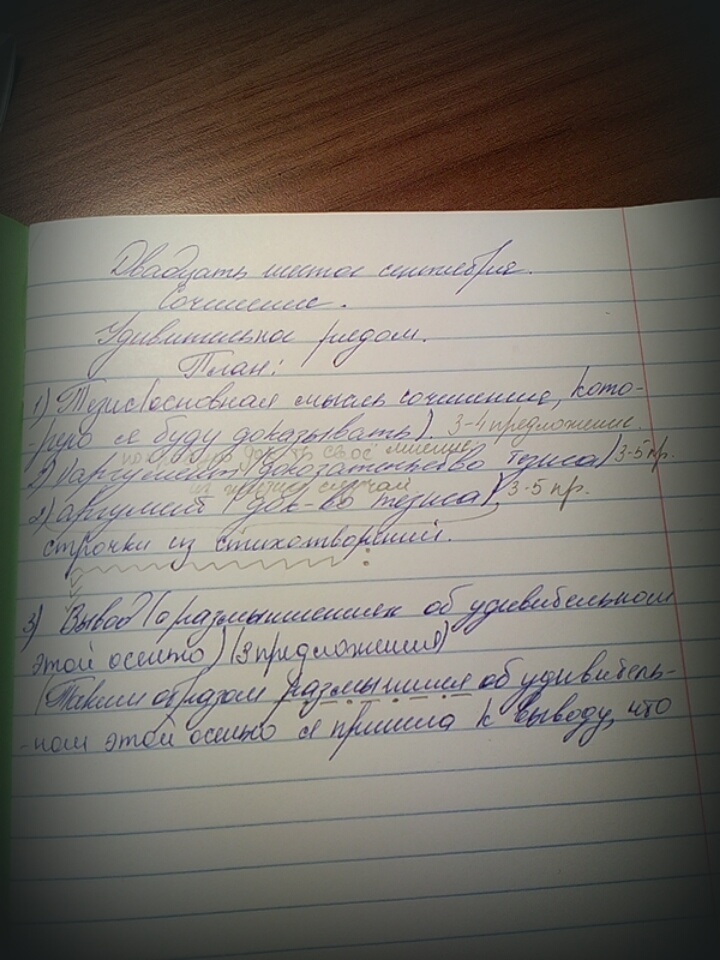 Двадцать шестое сентября.
Сочинение.
Удивительное рядом.
План:
1) Тезис (основная мысль сочинение, кото-
-рую я буду доказывать). 3-4 предложение.
свое мнение
2) 1 аргумент (доказательство тезиса) 3-5 пр.
из жизни случай
2) аргумент (док-во тезиса) 3-5 пр.
строчки из стихотворений.
3) Вывод (о размышлениях об удивительном
этой осенью) (3 предложения)
(Таким образом размышляя об удивитель-
-ном этой осенью я пришла к выводу, что